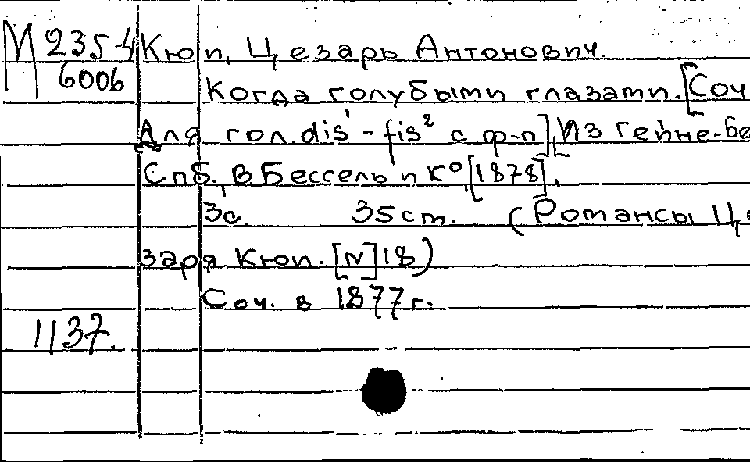 М 235-4 Кюи, Цезарь Антонович.
6006 Когда голубыми глазами. [Соч.
Для гол. dis¹-fis² с ф-п]. Из Гейне.
Спб., В Бессель и Кº, [1878].
3с. 35 ст. (Романсы Це
заря Кюи. [N] 18)
Соч. в 1877 г.
1137.